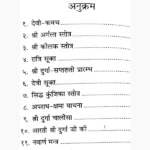 अनुक्रम
१. देवी-कवच
२. श्री अर्गला स्तोत्र
३. श्री कीलक स्तोत्र
४. रात्रि सूक्त
५. श्री दुर्गा-सप्तशती प्रारम्भ
६. देवी सूक्त
७. सिद्ध कुंजिका स्तोत्र
८. अपराध-क्षमा याचना
९. श्री दुर्गा चालीसा
१०. आरती श्री दुर्गा जी की
११. नवार्ण मन्त्र